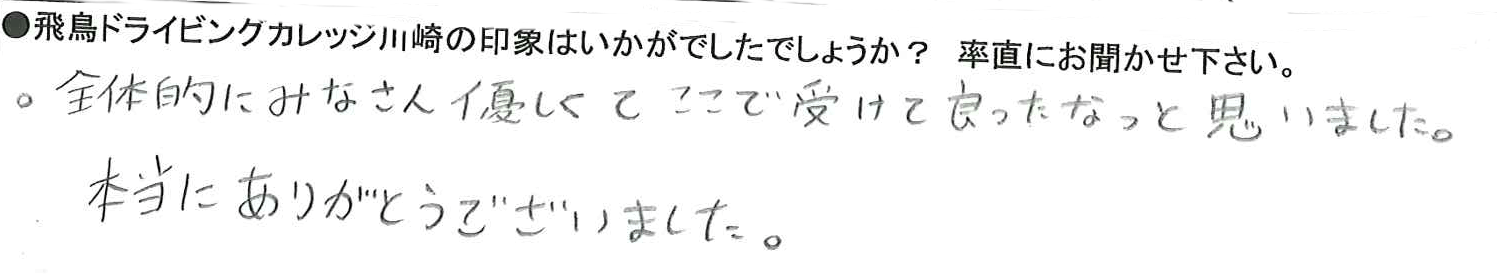 ●飛鳥ドライビングカレッジ川崎の印象はいかがでしたでしょうか？ 率直にお聞かせ下さい。
。全体的にみなさん優しくて ここで受けて良ったなっと思いました。
本当にありがとうございました。